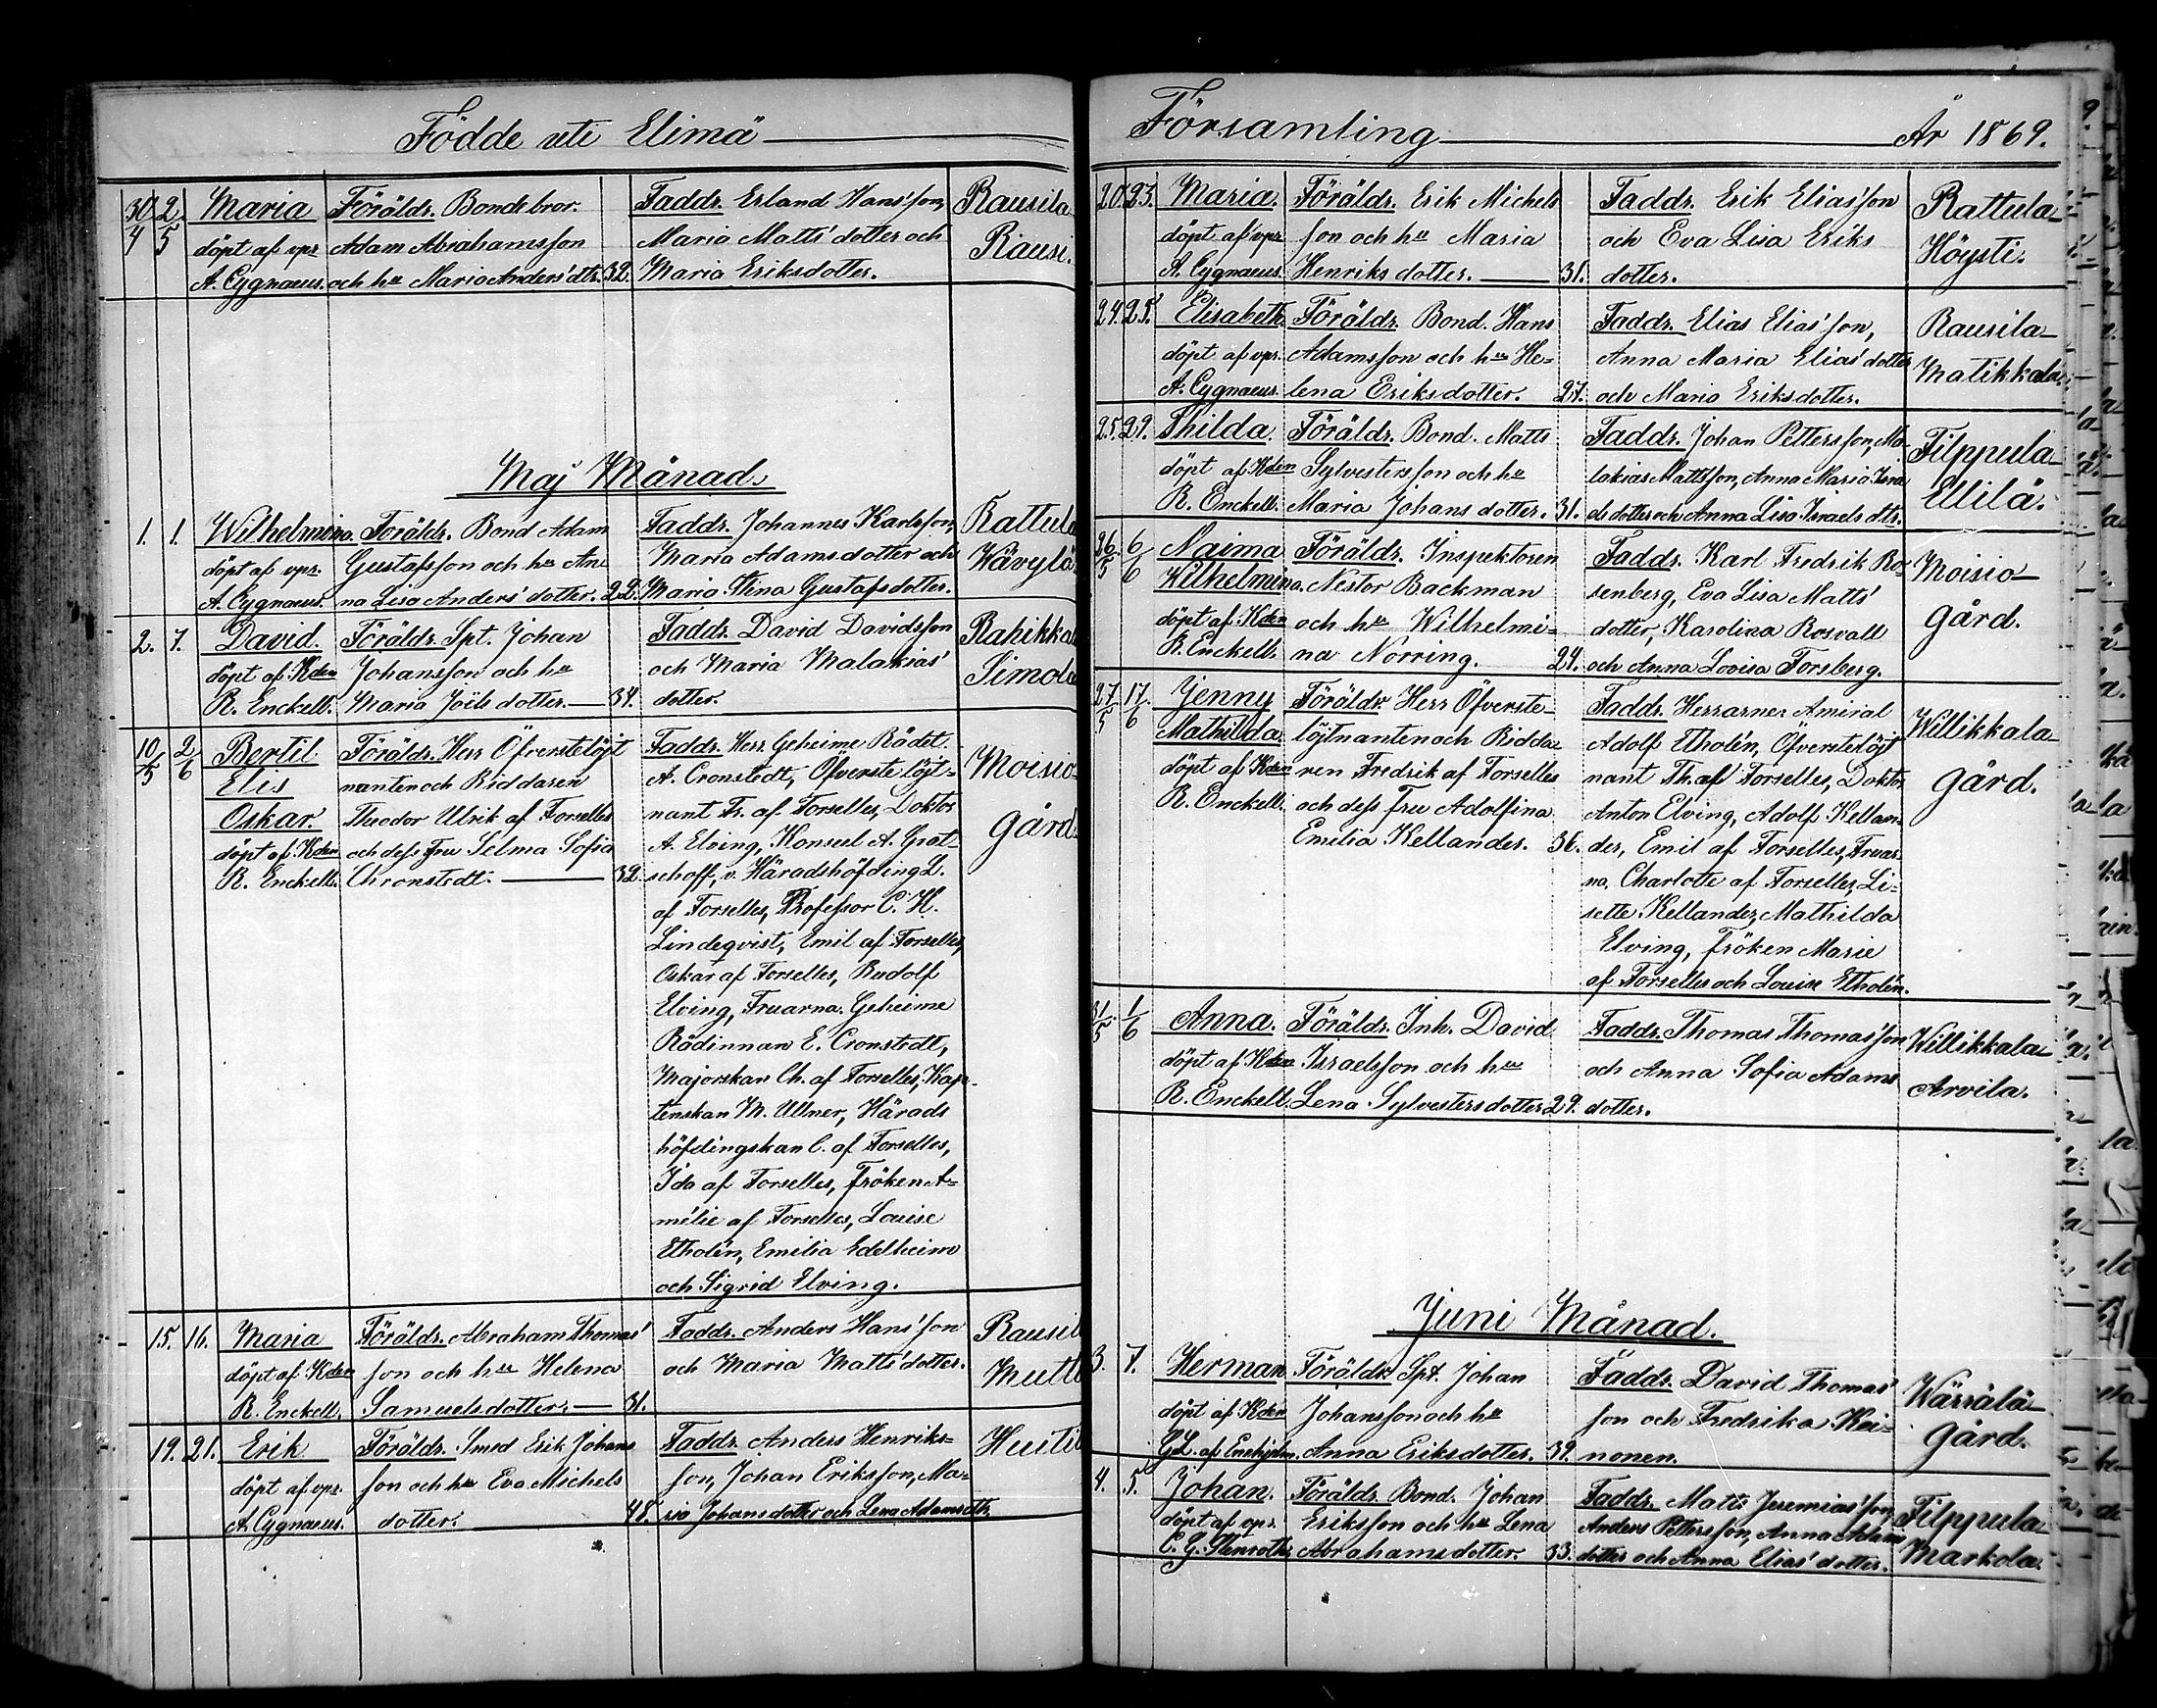 Födde uti Elimä
30/4 2/5 Maria Föräldr. Bondebror. Faddr. Erland Hans'son, Rausila
döpt af vpr. Adam Abrahamsson Maria Matts'dotter och Rausi.
A. Cygnaeus. och hu Maria Anders'dtr. 32. Maria Eriksdotter.
Maj Månad.
1. 1. Wilhelmina. Föräldr. Bond Adam Faddr. Johannes Karlsson, Rattula
döpt af vpr. Gustafsson och hu An Maria Adamsdotter och Wävylä
A. Cygnaeus. na Lisa Anders'dotter. 22. Maria Stina Gustafsdotter.
2. 7. David. Föräldr. Spt. Johan Faddr. David Davidsson Rahikka
döpt af Kden Johansson och hu och Maria Malakias' Simola
R. Enckell. Maria Joëls dotter. 34. dotter.
10/5 2/6 Bertil Föräldr. Herr Öfverstelöjt Faddr. Herr Geheime Rådet Moisio
Elis nanten och Riddaren A. Cronstedt, Öfverste löjt- gård
Oskar. Theodor Ulrik af Forselles nant Fr. af Forselles, Doktor
döpt af Kden och dess Fru Selma Sofia A. Elving, Konsul A. Grot-
R. Enckell. Chronstedt. 32. schoff, v. Häradshöfding L.
af Forselles, Professor C. H.
Lindeqvist, Emil af Forselles,
Oskar af Forselles, Rudolf
Elving, Fruarna. Geheime
Rådinnan E. Cronstedt,
Majorskan Ch. af Forselles, Kap-
tenskan M. Ullner, Härads
höfdingskan C. af Forselles,
Ida af Forselles, fröken A-
mélie af Forselles, Louise
Etholén, Emilia Edelheim
och Sigrid Elving.
15. 16. Maria Föräldr. Abraham Thomas' Faddr. Anders Hans'son Rausil
döpt af Kden son och hu Helena och Maria Matts'dotter. Mutt
R. Enckell. Samuelsdotter. 31.
19. 21. Erik Föräldr. Smed Erik Johans Faddr. Anders Henriks- Huiti
döpt af vpr. son och hu Eva Michels son, Johan Eriksson, Ma-
A. Cygnaeus. dotter. 48. ria Johansdotter och Lena Adamsdtr.
Församling År 1869.
20. 23. Maria. Föräldr. Erik Michels Faddr. Erik Elias'son Rattula
döpt af vpr son och hu Maria och Eva Lisa Eriks Höysti.
A. Cygnaeus. Henriks dotter. 31. dotter.
24. 25. Elisabeth. Föräldr. Bond. Hans Faddr. Elias Elias'son, Rausila
döpt af vpr. Adamsson och hu He- Anna Maria Elias'dotter Matikkala
A. Cygnaeus. lena Eriksdotter. 27. och Maria Eriksdotter.
25. 29. Thilda. Föräldr. Bond. Matts Faddr. Johan Pettersson, Ma- Filppula
döpt af Kden Sylvestersson och hu lakias Mattsson, Anna Maria Isra Ellilä.
R. Enckell. Maria Johans dotter. 31. els dotter och Anna Lisa Israels dtr.
26/5 6/6 Naima Föräldr. Inspektoren Faddr. Karl Fredrik Ro- Moisio
Wilhelmina. Nestor Backman senberg, Eva Lisa Matts' gård.
döpt af Kden och hu Wilhelmi- dotter, Karolina Rosvall
R. Enckell. na Norring. 24. och Anna Lovisa Forsberg.
27/5 17/6 Jenny Föräldr. Herr Öfverste- Faddr. Herrarne Amiral Willikkala
Mathilda. löjtnanten och Ridda- Adolf Etholén, Öfverstelöjt gård.
döpt af Kden ren Fredrik af Forselles nant Th. af Forselles, Doktor
R. Enckell. och dess Fru Adolfina Anton Elving, Adolf Kellan-
Emilia Kellander. 36. der, Emil af Forselles, Fruar-
na, Charlotte af Forselles, Li-
sette Kellander, Mathilda
Elving, Fröken Marie
af Forselles och Louise Etholén.
31/5 1/6 Anna. Föräldr. Inh. David Faddr. Thomas Thomas'son Willikkala
döpt af Kden Israelsson och hu och Anna Sofia Adams Arvila.
R. Enckell. Lena Sylvesters dotter 29. dotter.
Juni Månad.
3. 7. Herman Föräldr. Spt. Johan Faddr. David Thomas' Wärrälä
döpt af Kden Johansson och hu son och Fredrika Hei- gård.
G. L. af Enehjelm. Anna Eriksdotter. 39. nonen.
4. 5. Johan. Föräldr. Bond. Johan Faddr. Matts Jeremias'son, Filppula
döpt af vpr. Eriksson och hu Lena Anders Pettersson, Anna Adam Markola.
C. G. Stenroth. Abrahamsdotter. 33. dotter och Anna Elias'dotter.